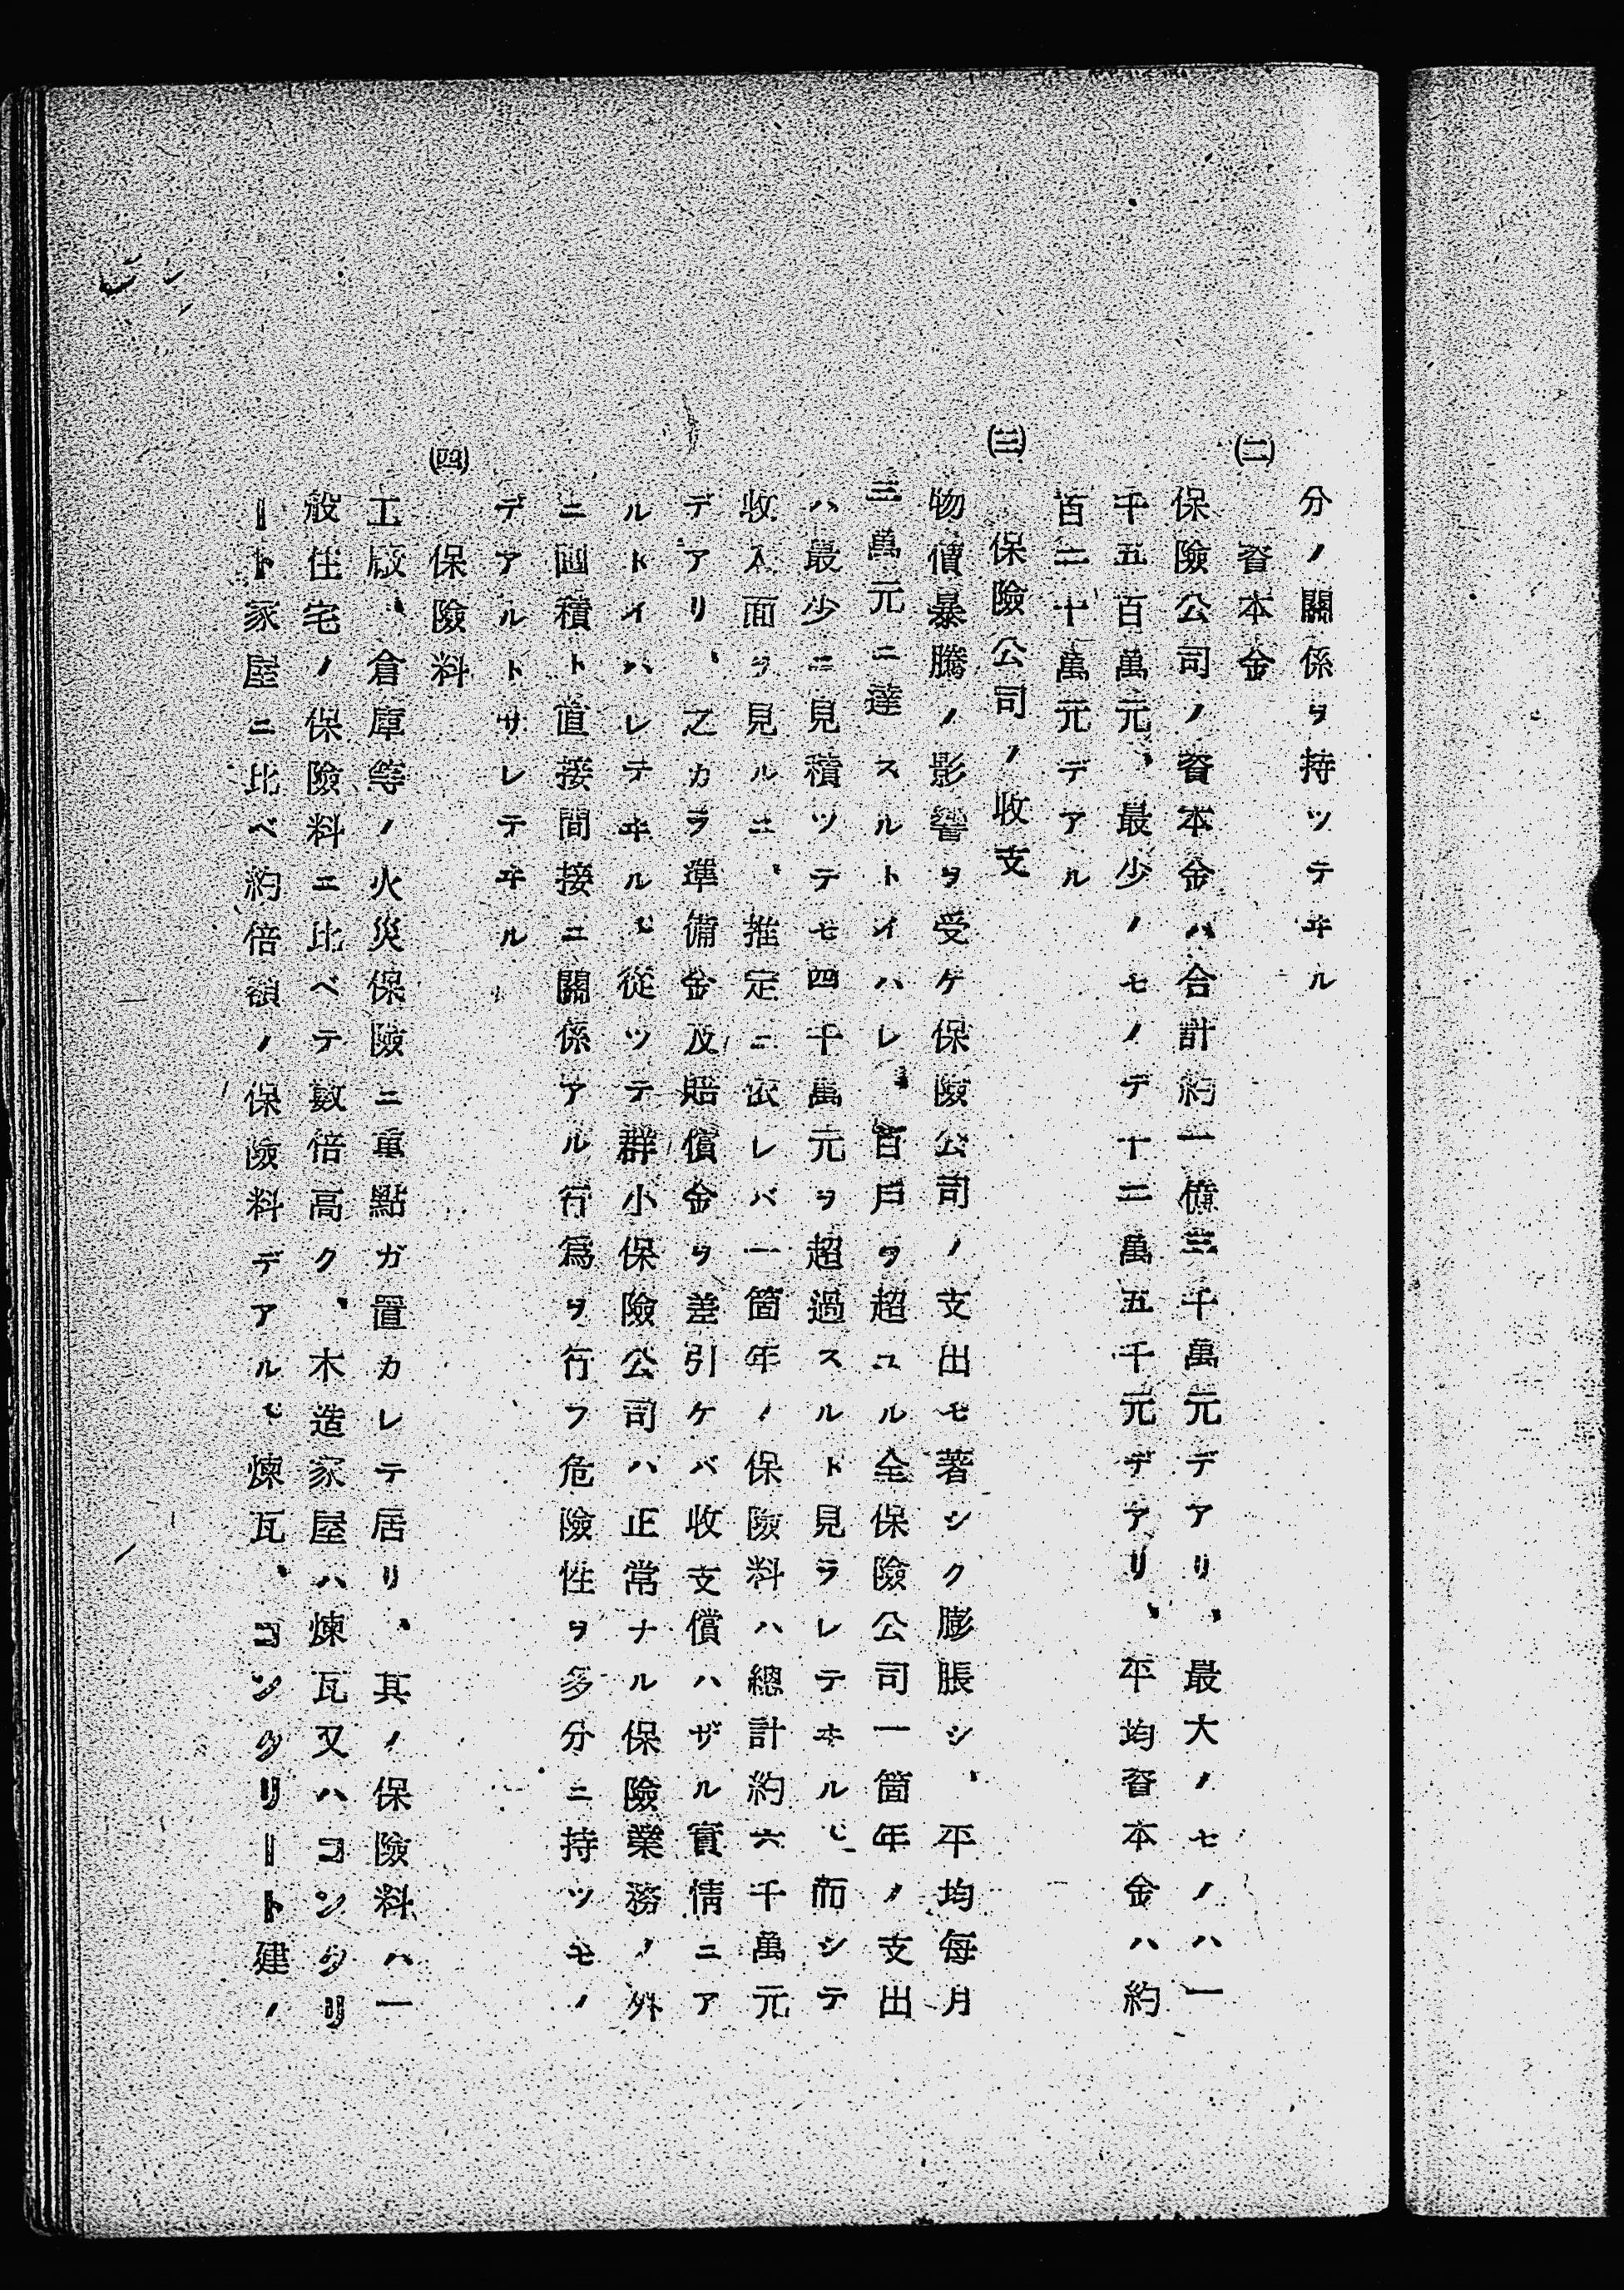 分ノ關係ヲ持ツテヰル
㈡ 資本金
保險公司ノ資本金ハ合計約一億三千萬元デアリ、最大ノモノハ一
千五百萬元、最少ノモノデ十二萬五千元デアリ、平均資本金ハ約
百二十萬元デアル
㈢ 保險公司ノ收支
物價暴騰ノ影響ヲ受ケ保險公司ノ支出モ著シク膨脹シ、平均每月
三萬元ニ達スルトイハレ、百戶ヲ超ユル全保險公司一箇年ノ支出
ハ最少ニ見積ツテモ四千萬元ヲ超過スルト見ラレテヰル。而シテ
收入面ヲ見ルニ、推定ニ依レバ一箇年ノ保險料ハ總計約六千萬元
デアリ、之カラ準備金及賠償金ヲ差引ケバ收支償ハザル實情ニア
ルトイハレテヰル。從ツテ群小保險公司ハ正常ナル保險業務ノ外
ニ囤積ト直接間接ニ關係アル行爲ヲ行フ危險性ヲ多分ニ持ツモノ
デアルトサレテヰル
㈣ 保險料
工廠、倉庫等ノ火災保險ニ重點ガ置カレテ居リ、其ノ保險料ハ一
般住宅ノ保險料ニ比ベテ數倍高ク、木造家屋ハ煉瓦又ハコンクリ
ート家屋ニ比ベ約倍額ノ保險料デアル。煉瓦、コンクリート建ノ